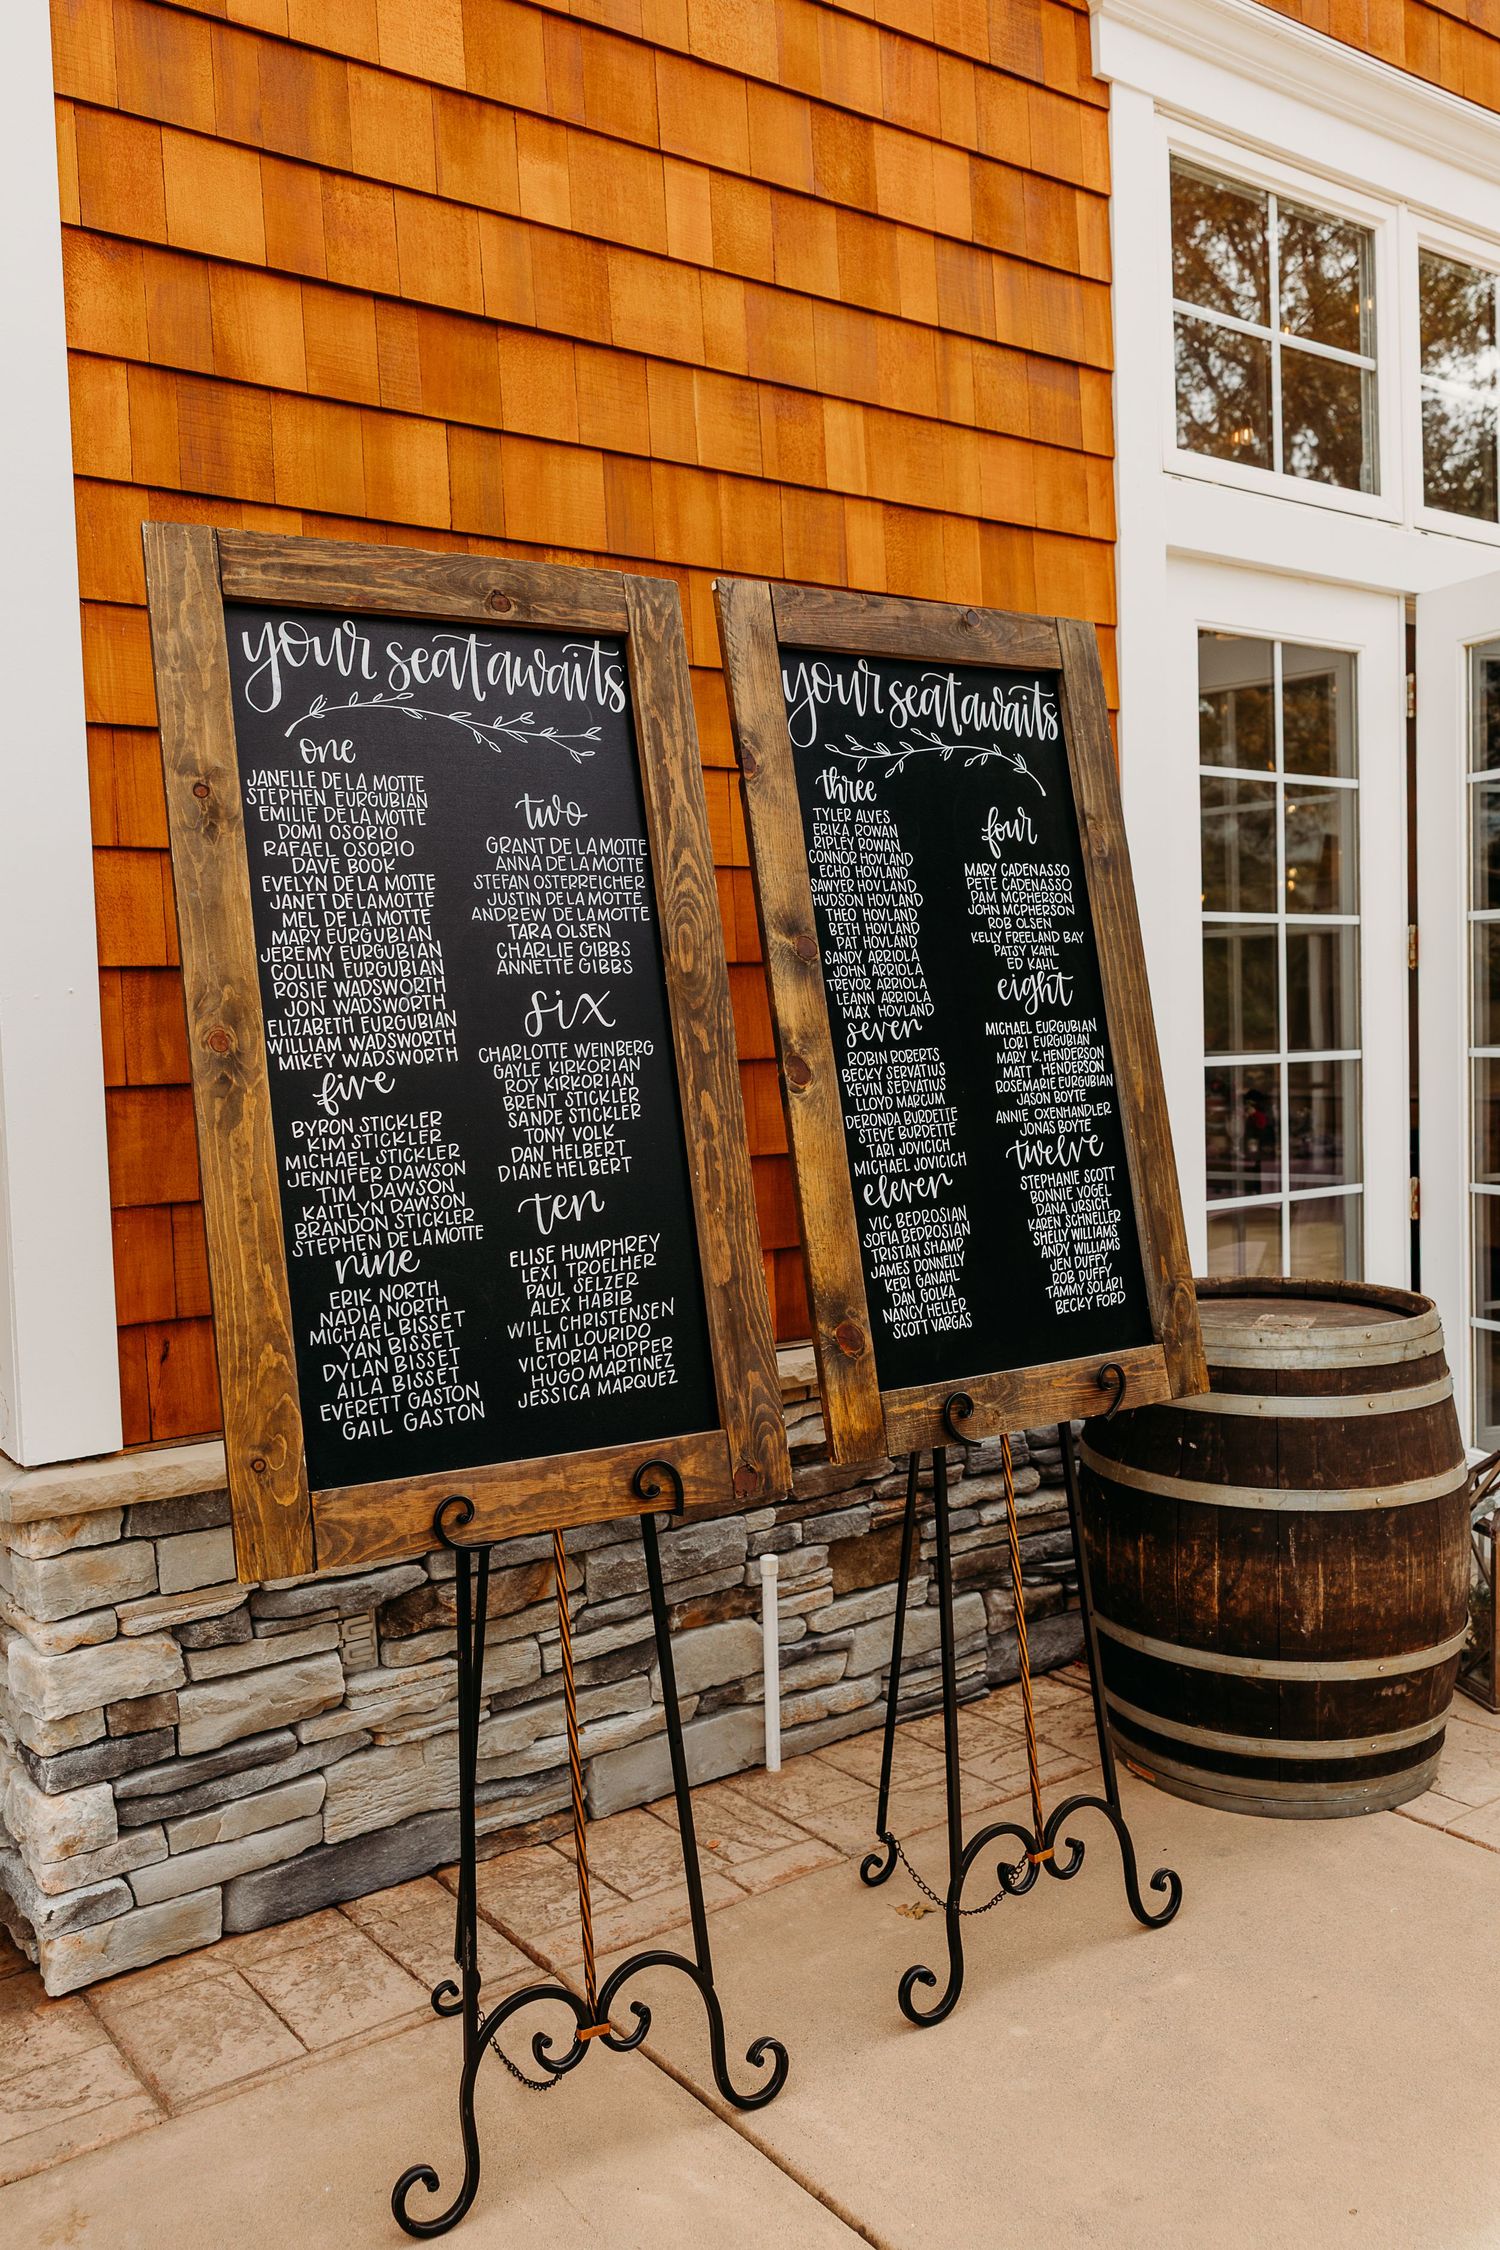 your seat awaits
one
JANELLE DE LA MOTTE
STEPHEN EURGUBIAN
EMILIE DE LA MOTTE
DOMI OSORIO
RAFAEL OSORIO
DAVE BOOK
EVELYN DE LA MOTTE
JANET DE LAMOTTE
MEL DE LA MOTTE
MARY EURGUBIAN
JEREMY EURGUBIAN
COLLIN EURGUBIAN
ROSIE WADSWORTH
JON WADSWORTH
ELIZABETH EURGUBIAN
WILLIAM WADSWORTH
MIKEY WADSWORTH
five
BYRON STICKLER
KIM STICKLER
MICHAEL STICKLER
JENNIFER DAWSON
TIM DAWSON
KAITLYN DAWSON
BRANDON STICKLER
STEPHEN DE LA MOTTE
nine
ERIK NORTH
NADIA NORTH
MICHAEL BISSET
YAN BISSET
DYLAN BISSET
AILA BISSET
EVERETT GASTON
GAIL GASTON
two
GRANT DE LA MOTTE
ANNA DE LA MOTTE
STEFAN OSTERREICHER
JUSTIN DE LA MOTTE
ANDREW DE LA MOTTE
TARA OLSEN
CHARLIE GIBBS
ANNETTE GIBBS
six
CHARLOTTE WEINBERG
GAYLE KIRKORIAN
ROY KIRKORIAN
BRENT STICKLER
SANDE STICKLER
TONY VOLK
DAN HELBERT
DIANE HELBERT
ten
ELISE HUMPHREY
LEXI TROELHER
PAUL SELZER
ALEX HABIB
WILL CHRISTENSEN
EMI LOURIDO
VICTORIA HOPPER
HUGO MARTINEZ
JESSICA MARQUEZ
your seat awaits
three
TYLER ALVES
ERIKA ROWAN
RIPLEY ROWAN
CONNOR HOVLAND
ECHO HOVLAND
SAWYER HOVLAND
HUDSON HOVLAND
THEO HOVLAND
BETH HOVLAND
PAT HOVLAND
SANDY ARRIOLA
JOHN ARRIOLA
TREVOR ARRIOLA
LEANN ARRIOLA
MAX HOVLAND
seven
ROBIN ROBERTS
BECKY SERVATIUS
KEVIN SERVATIUS
LLOYD MARCUM
DERONDA BURDETTE
STEVE BURDETTE
TARI JOVICICH
MICHAEL JOVICICH
eleven
VIC BEDROSIAN
SOFIA BEDROSIAN
TRISTAN SHAMP
JAMES DONNELLY
KERI GANAHL
DAN GOLKA
NANCY HELLER
SCOTT VARGAS
four
MARY CADENASSO
PETE CADENASSO
PAM MCPHERSON
JOHN MCPHERSON
ROB OLSEN
KELLY FREELAND BAY
PATSY KAHL
ED KAHL
eight
MICHAEL EURGUBIAN
LORI EURGUBIAN
MARY K. HENDERSON
MATT HENDERSON
ROSEMARIE EURGUBIAN
JASON BOYTE
ANNIE OXENHANDLER
JONAS BOYTE
twelve
STEPHANIE SCOTT
BONNIE VOGEL
DANA URSICH
KAREN SCHNELLER
SHELLY WILLIAMS
ANDY WILLIAMS
JEN DUFFY
ROB DUFFY
TAMMY SOLARI
BECKY FORD